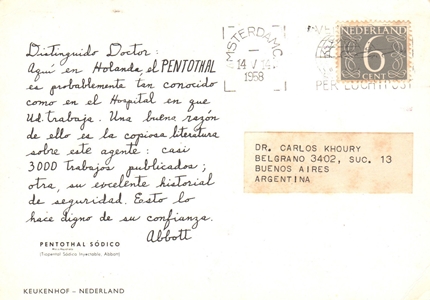 Distinguido Doctor:
Aquí en Holanda, el PENTOTHAL
es probablemente tan conocido
como en el Hospital en que
Ud. trabaja. Una buena razón
de ello es la copiosa literatura
sobre este agente: casi
3000 trabajos publicados;
otra, su excelente historial
de seguridad. Esto lo
hace digno de su confianza.
Abbott
PENTOTHAL SÓDICO
(Tiopental Sódico Inyectable, Abbott)
KEUKENHOF – NEDERLAND
AMSTERDAM C.
1958
PER LUCHTPOST
NEDERLAND
6
CENT
DR. CARLOS KHOURY
BELGRANO 3402, SUC. 13
BUENOS AIRES
ARGENTINA